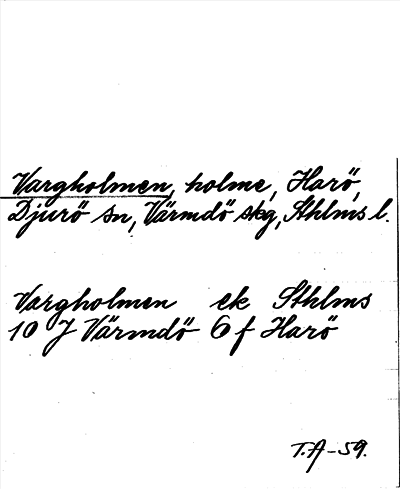 Vargholmen, holme, Harö,
Djurö sn, Värmdö skg, Sthlms l.
Vargholmen ek Sthlms
10 J Värmdö 6 f Harö
T.A-59.